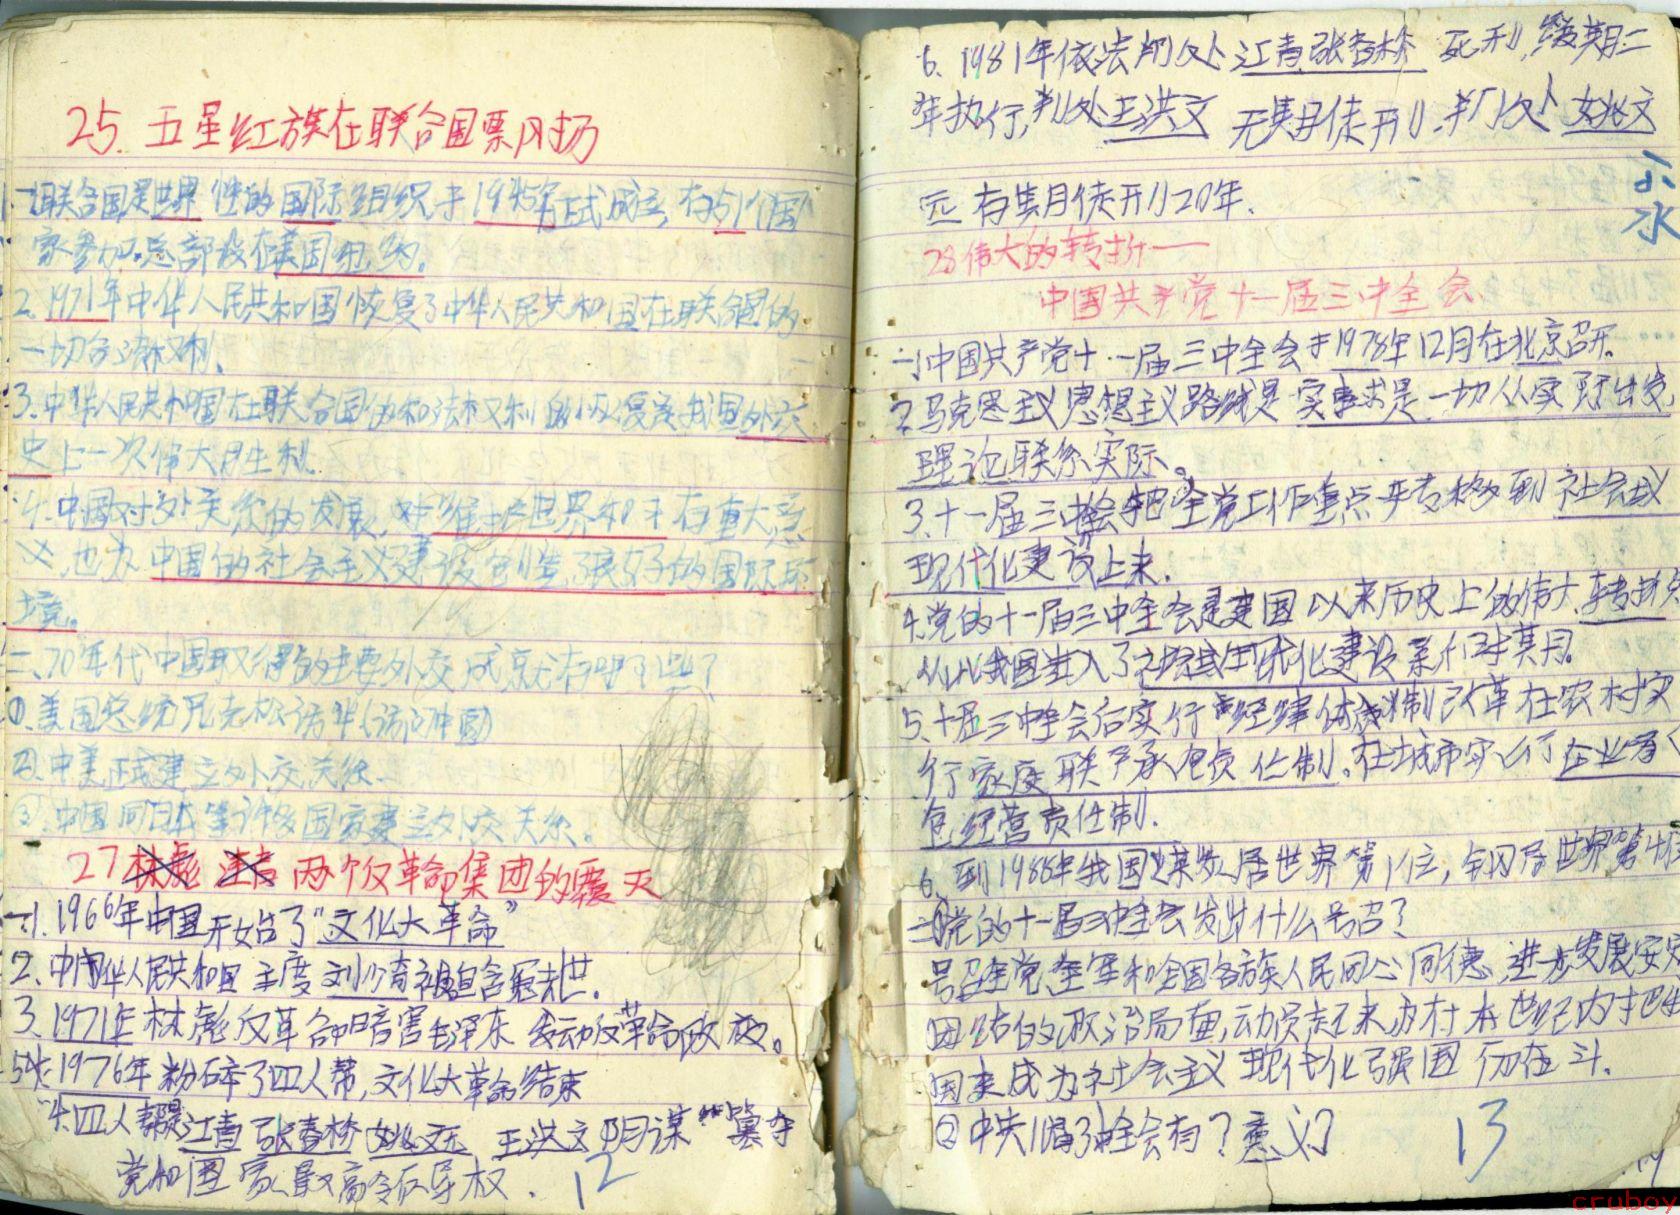 25. 五星红旗在联合国飘扬
一1.联合国是世界性的国际组织于1945年正式成立,有51个国
家参加.总部设在美国纽约.
2.1971年中华人民共和国恢复了中华人民共和国在联合国的
一切合法权利.
3.中华人民共和国在联合国的和法权利的恢复是我国外交
史上一次伟大胜利.
4.中国对外关系的发展,对维护世界和平有重大意
义,也为中国的社会主义建设创造了良好的国际环
境。
二、70年代中国取得的主要外交成就有哪些?
①.美国总统尼克松访华(访问中国)
②.中美正式建立外交关系.
③.中国同日本等许多国家建立外交关系。
27 林彪 江青 两个反革命集团的覆灭
一.1.1966年中国开始了"文化大革命"
2.中华人民共和国主席刘少奇被迫含冤去世.
3.1971年林彪反革命暗害毛泽东 发动反革命政变。
5.1976年粉碎了四人帮,文化大革命结束
4.四人帮是江青 张春桥 姚文元 王洪文阴谋篡夺
党和国家最高领导权.
12
6. 1981年依法判处江青张春桥 死刑,缓期二
年执行,判处王洪文 无期徒刑.判处姚文
元 有期徒刑20年.
水
28伟大的转折——
中国共产党十一届三中全会
一1.中国共产党十一届三中全会于1978年12月在北京召开.
2.马克思主义思想主义路线是 实事求是 一切从实际出发,
理论联系实际。
3.十一届三中全会把全党工作重点 转移到 社会主义
现代化建设上来.
4.党的十一届三中全会是建国以来历史上的伟大转折
从此我国进入了社会主义现代化建设新时期。
5.十届三中全会后实行 经济体制改革在农村实
行 家庭联产承包责任制.在城市实行企业承
包经营责任制.
6.到1988年我国煤炭居世界第1位,
二①党的十一届三中全会发出什么号召?
号召全党全军和全国各族人民同心同德 进步发展安定
团结的政治局面,动员起来为在本世纪内把
国来成为社会主义现代化强国而奋斗.
②中共11届3中全会有?意义?
13
cruboy